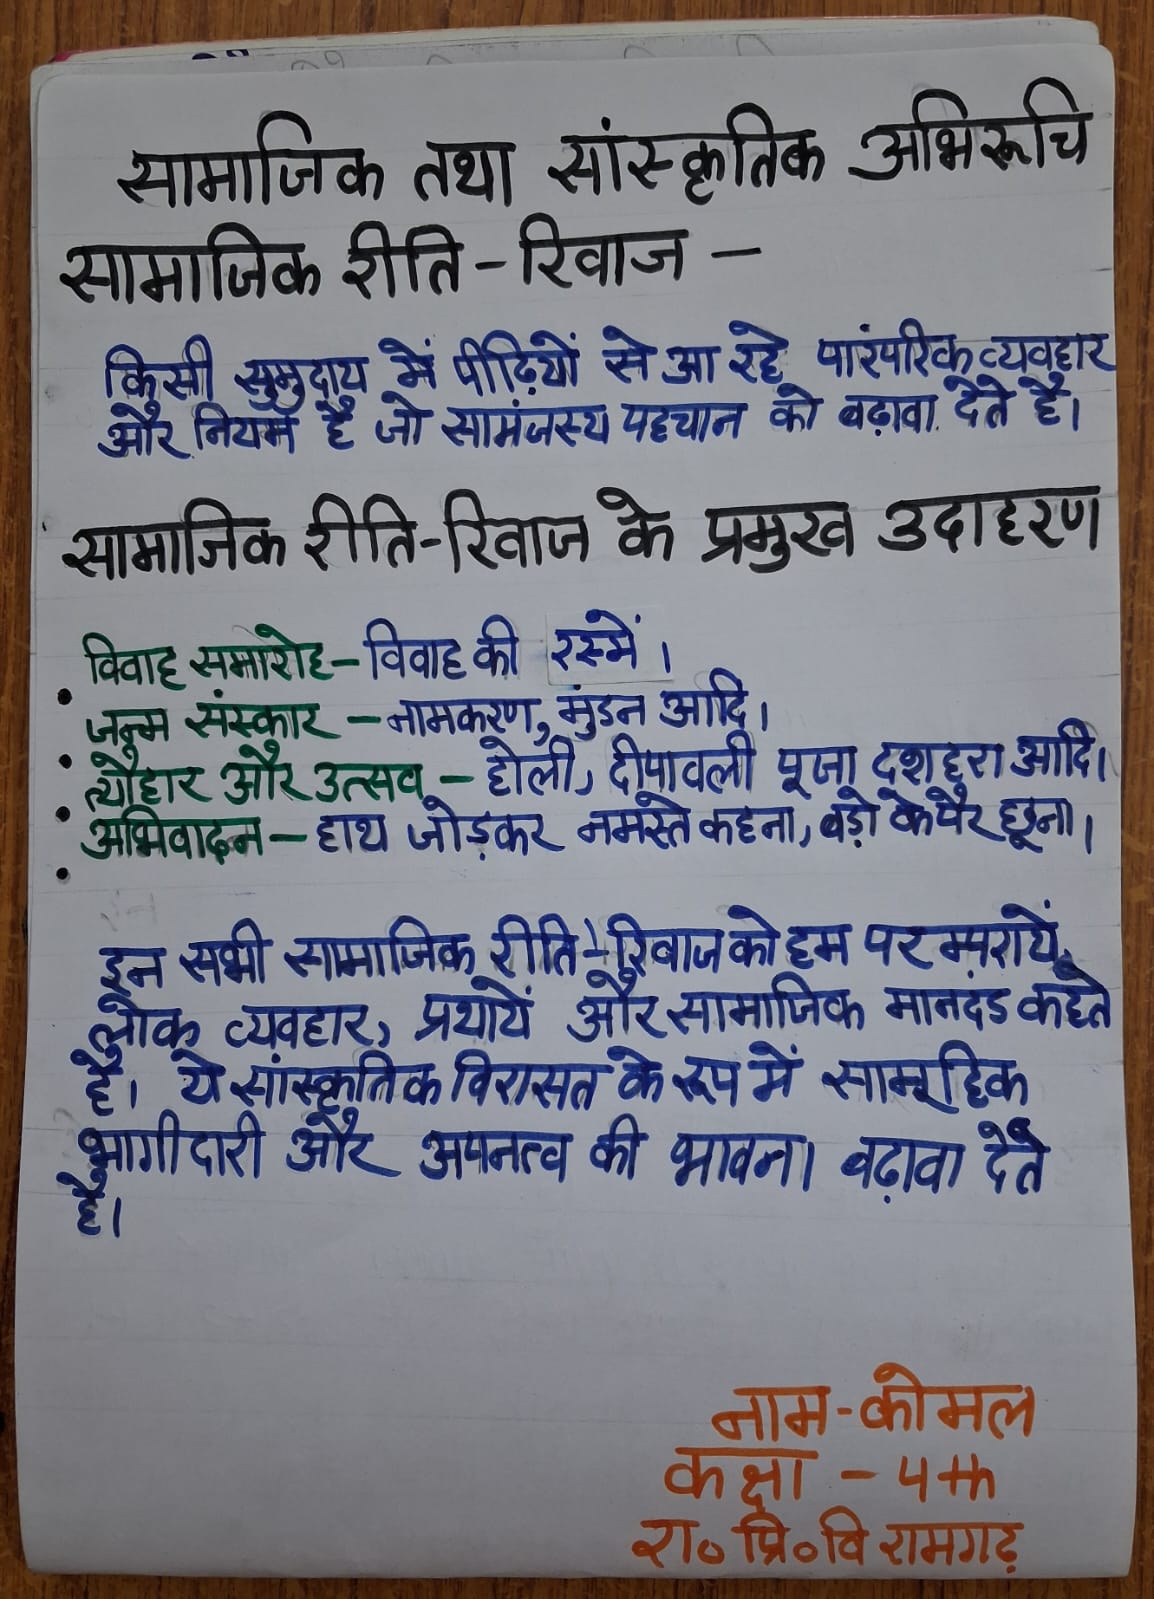 सामाजिक तथा सांस्कृतिक अभिरूचि
सामाजिक रीति - रिवाज -
किसी सुमुदाय में पीढ़ियों से आ रहे पारंपरिक व्यवहार
और नियम है जो सामंजस्य पहचान को बढ़ावा देते है।
सामाजिक रीति-रिवाज के प्रमुख उदाहरण
विवाह समारोह - विवाह की रस्में।
• जन्म संस्कार - नामकरण, मुंडन आदि।
• त्यौहार और उत्सव - होली, दीपावली पूजा दशहरा आदि।
• अभिवादन - हाथ जोड़कर नमस्ते कहना, बड़ो के पैर छूना।
•
इन सभी सामाजिक रीति-रिवाज को हम परम्परायें,
लोक व्यवहार, प्रथायें और सामाजिक मानदड कहते
है। ये सांस्कृतिक विरासत के रूप में सामूहिक
भागीदारी और अपनत्व की भावना बढ़ावा देते
है।
नाम - कोमल
कक्षा - 4th
रा० प्रि० वि रामगढ़